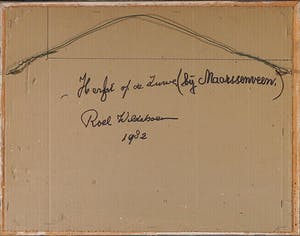 Herfst op de Zuwe (bij Maarsseveen.)
Roel Wildeboer
1982